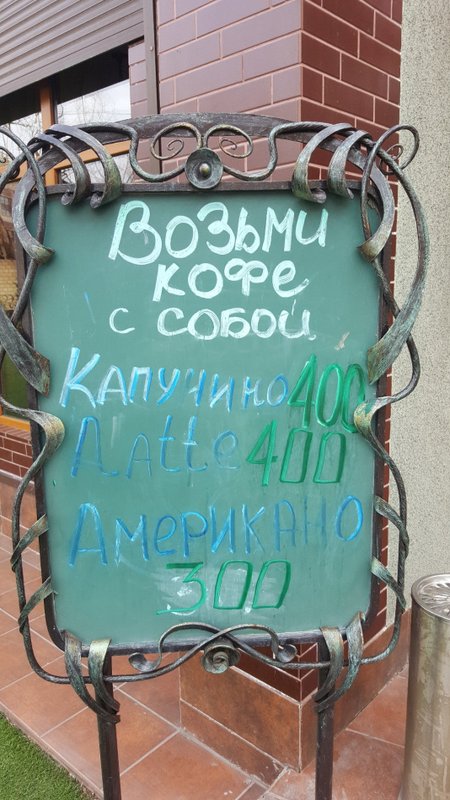 Возьми
кофе
с собой
Капучино 400
Латте 400
Американо
300